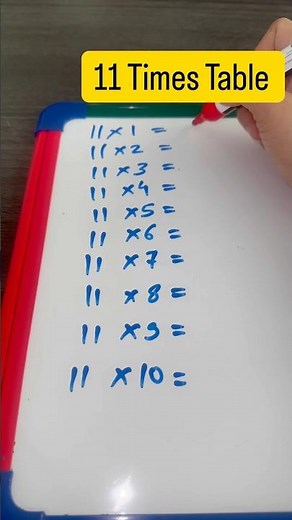 11 Times Table
11 x 1 =
11 x 2 =
11 x 3 =
11 x 4 =
11 x 5 =
11 x 6 =
11 x 7 =
11 x 8 =
11 x 9 =
11 x 10 =